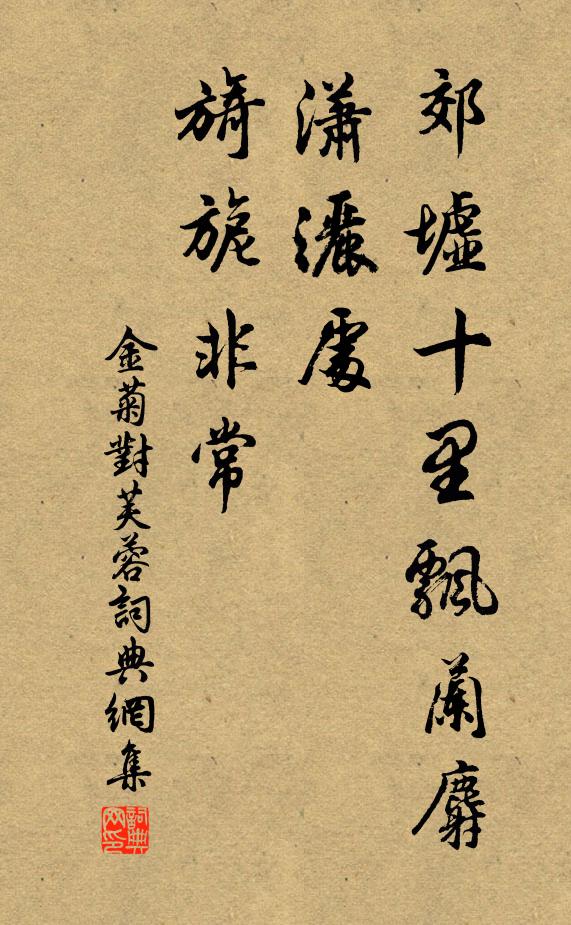 郊墟十里飄蘭麝
瀟灑處
旖旎非常
金菊對芙蓉詞典網集
詞典網印